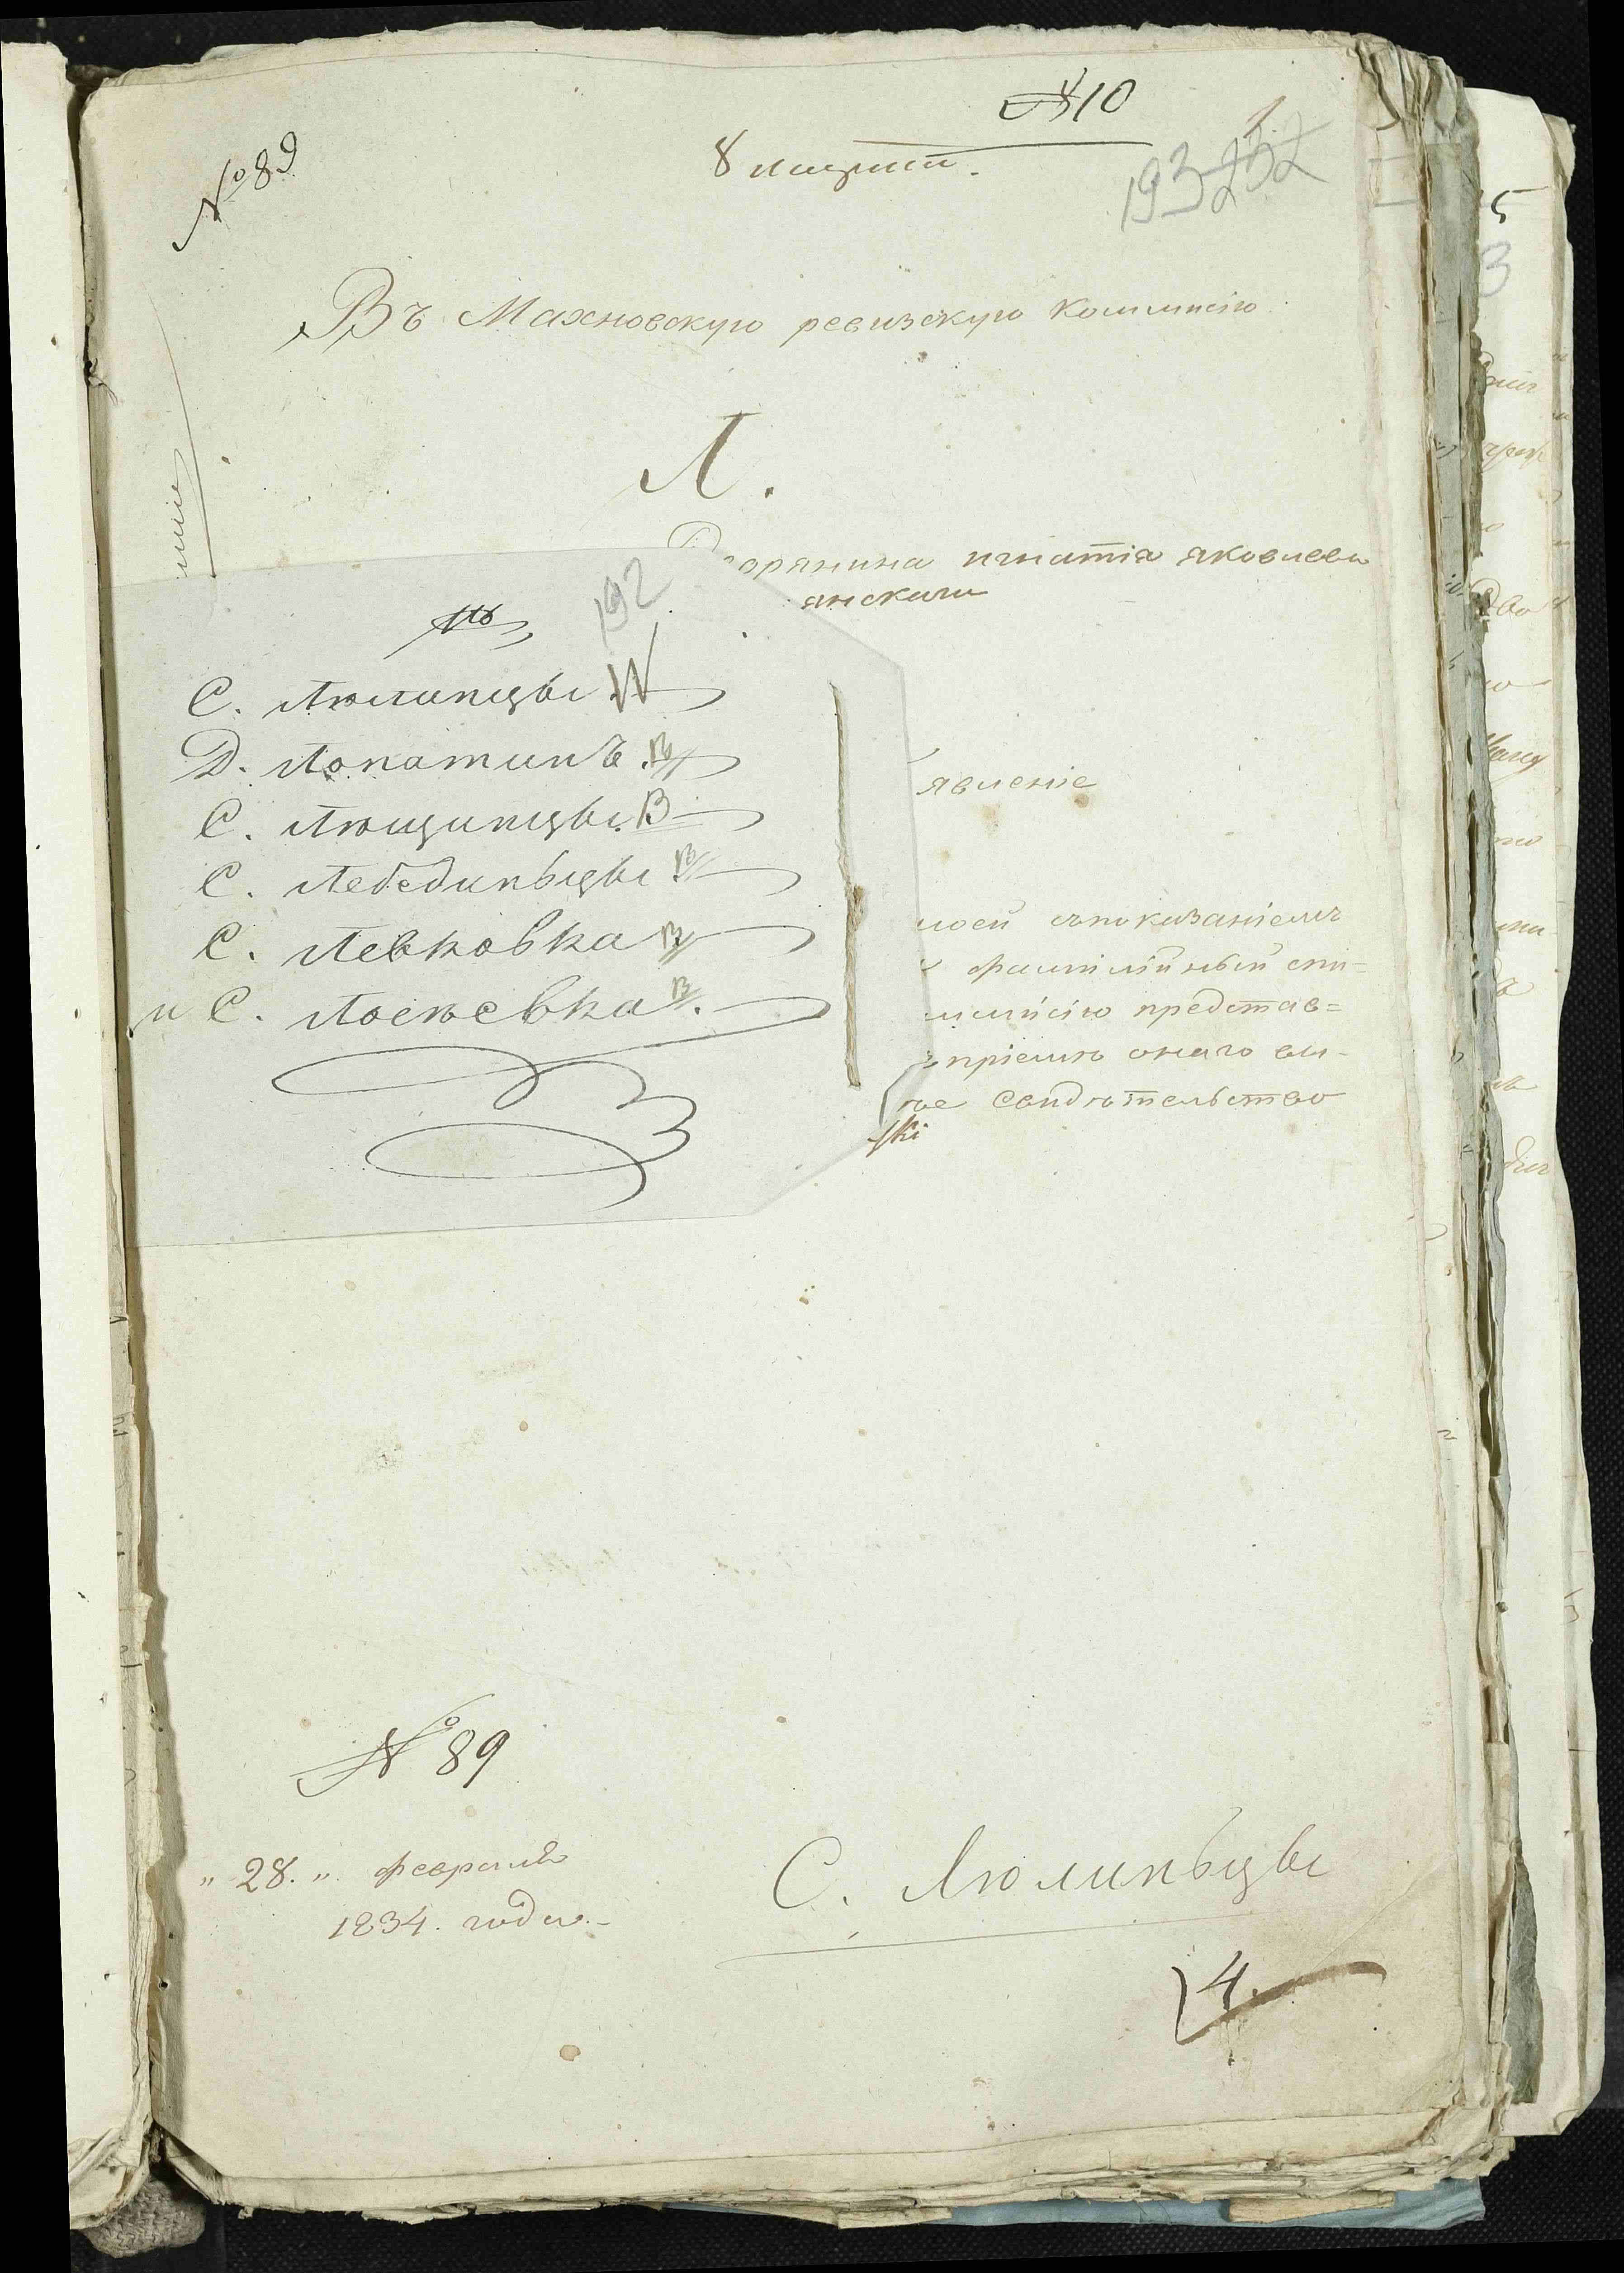 № 10
№ 89
8 марта.
1
193 232
Въ Махновскую ревизскую Коммисію
Л.
Дворянина игнатія яковлева
анскаго
192
С. Люлинцы W
Д. Лопатинъ. В
С. Лющинцы. В
С. Лебединьцы В
С. Левковка В
и С. Лоежевка В.
явленіе
моей съ показаніемъ
фамилійный спи=
ммисію представ=
пріемю онаго вы-
ное свидѣтельство
ski
№ 89
" 28. " февраля
1834. года.-
С. Люлиньцы
4.